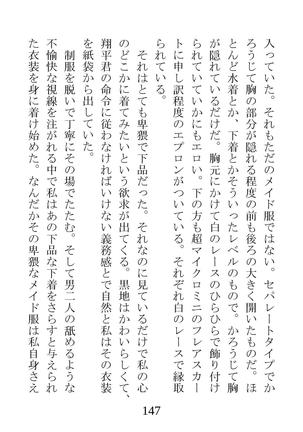 入っていた。それもただのメイド服ではない。セパレートタイプでか
ろうじて胸の部分が隠れる程度の前も後ろの大きく開いたものだ。ほ
とんど水着とか、下着とかそういったレベルのもので。かろうじて胸
が隠れているだけだ。胸元にかけて白のレースのひらひらで飾り付け
られていていかにもエロい。下の方も超マイクロミニのフレアスカー
トに申し訳程度のエプロンがついている。それぞれ白のレースで縁取
られている。
　それはとても卑猥で下品だった。それなのに見ているだけで私の心
のどこかに着てみたいという欲求が出てくる。黒地はかわいらしくて、
翔平君の命令に従わなければいけない義務感とで自然と私はその衣装
を紙袋から出していた。
　制服を脱いで丁寧にその場でたたむ。そして男二人の舐めるような
不愉快な視線を注がれる中で私はあの下品な下着をさらすと与えられ
た衣装を身に着け始めた。なんだかその卑猥なメイド服は私自身さえ
147